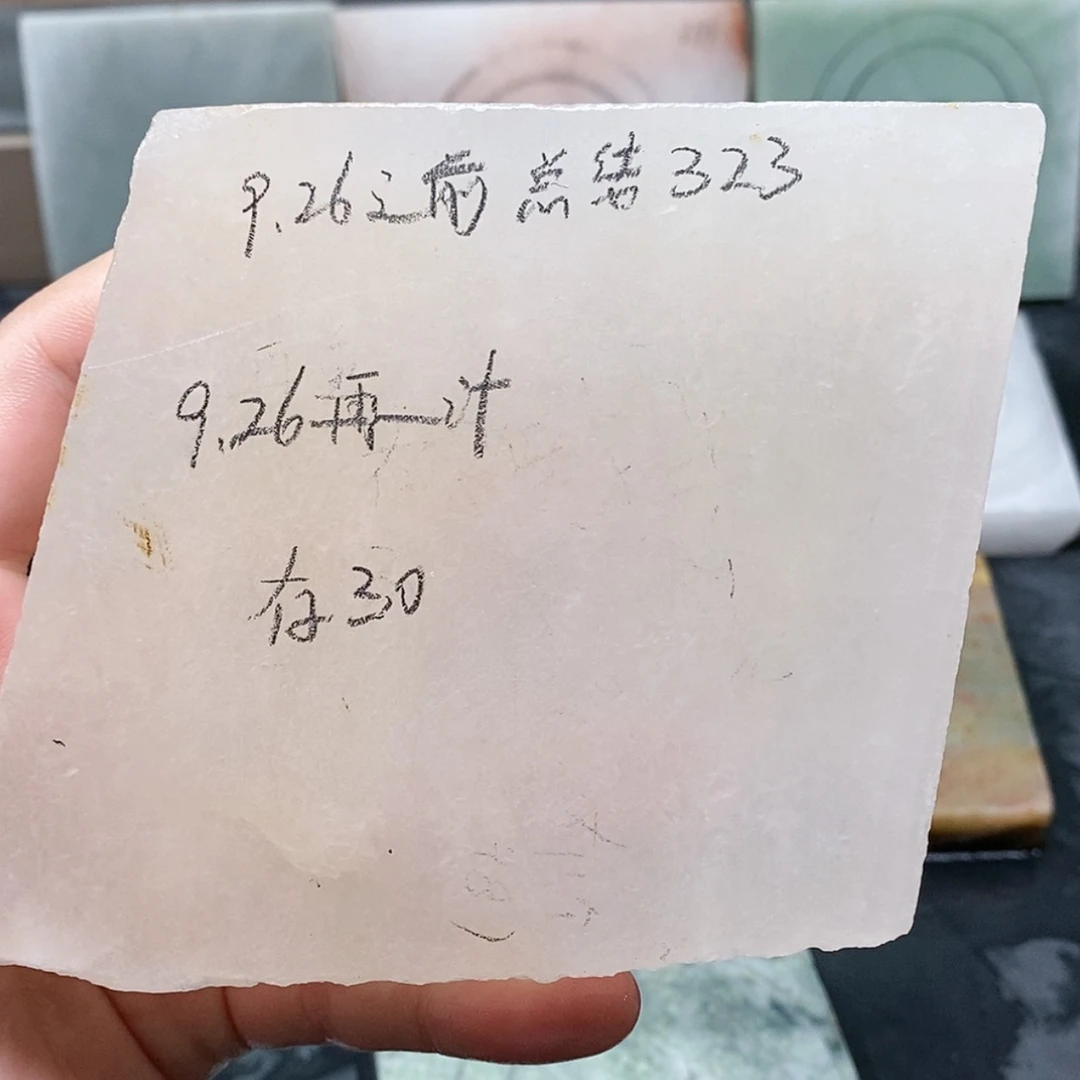 9.26之前总结323
9.26再一次
存30